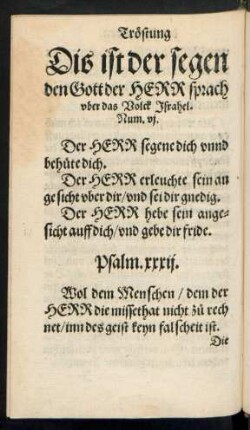 Tröstung
Dis ist der segen
den Gott der HERR sprach
vber das Volck Israhel.
Num. vj.
Der HERR segene dich vnnd
behüte dich.
Der HERR erleuchte sein an
gesicht vber dir/vnd sei dir gnedig.
Der HERR hebe sein ange-
sicht auff dich/vnd gebe dir fride.
Psalm. xxxij.
Wol dem Menschen / dem der
HERR die missethat nicht zů rech
net/inn des geist keyn falscheit ist.
Die